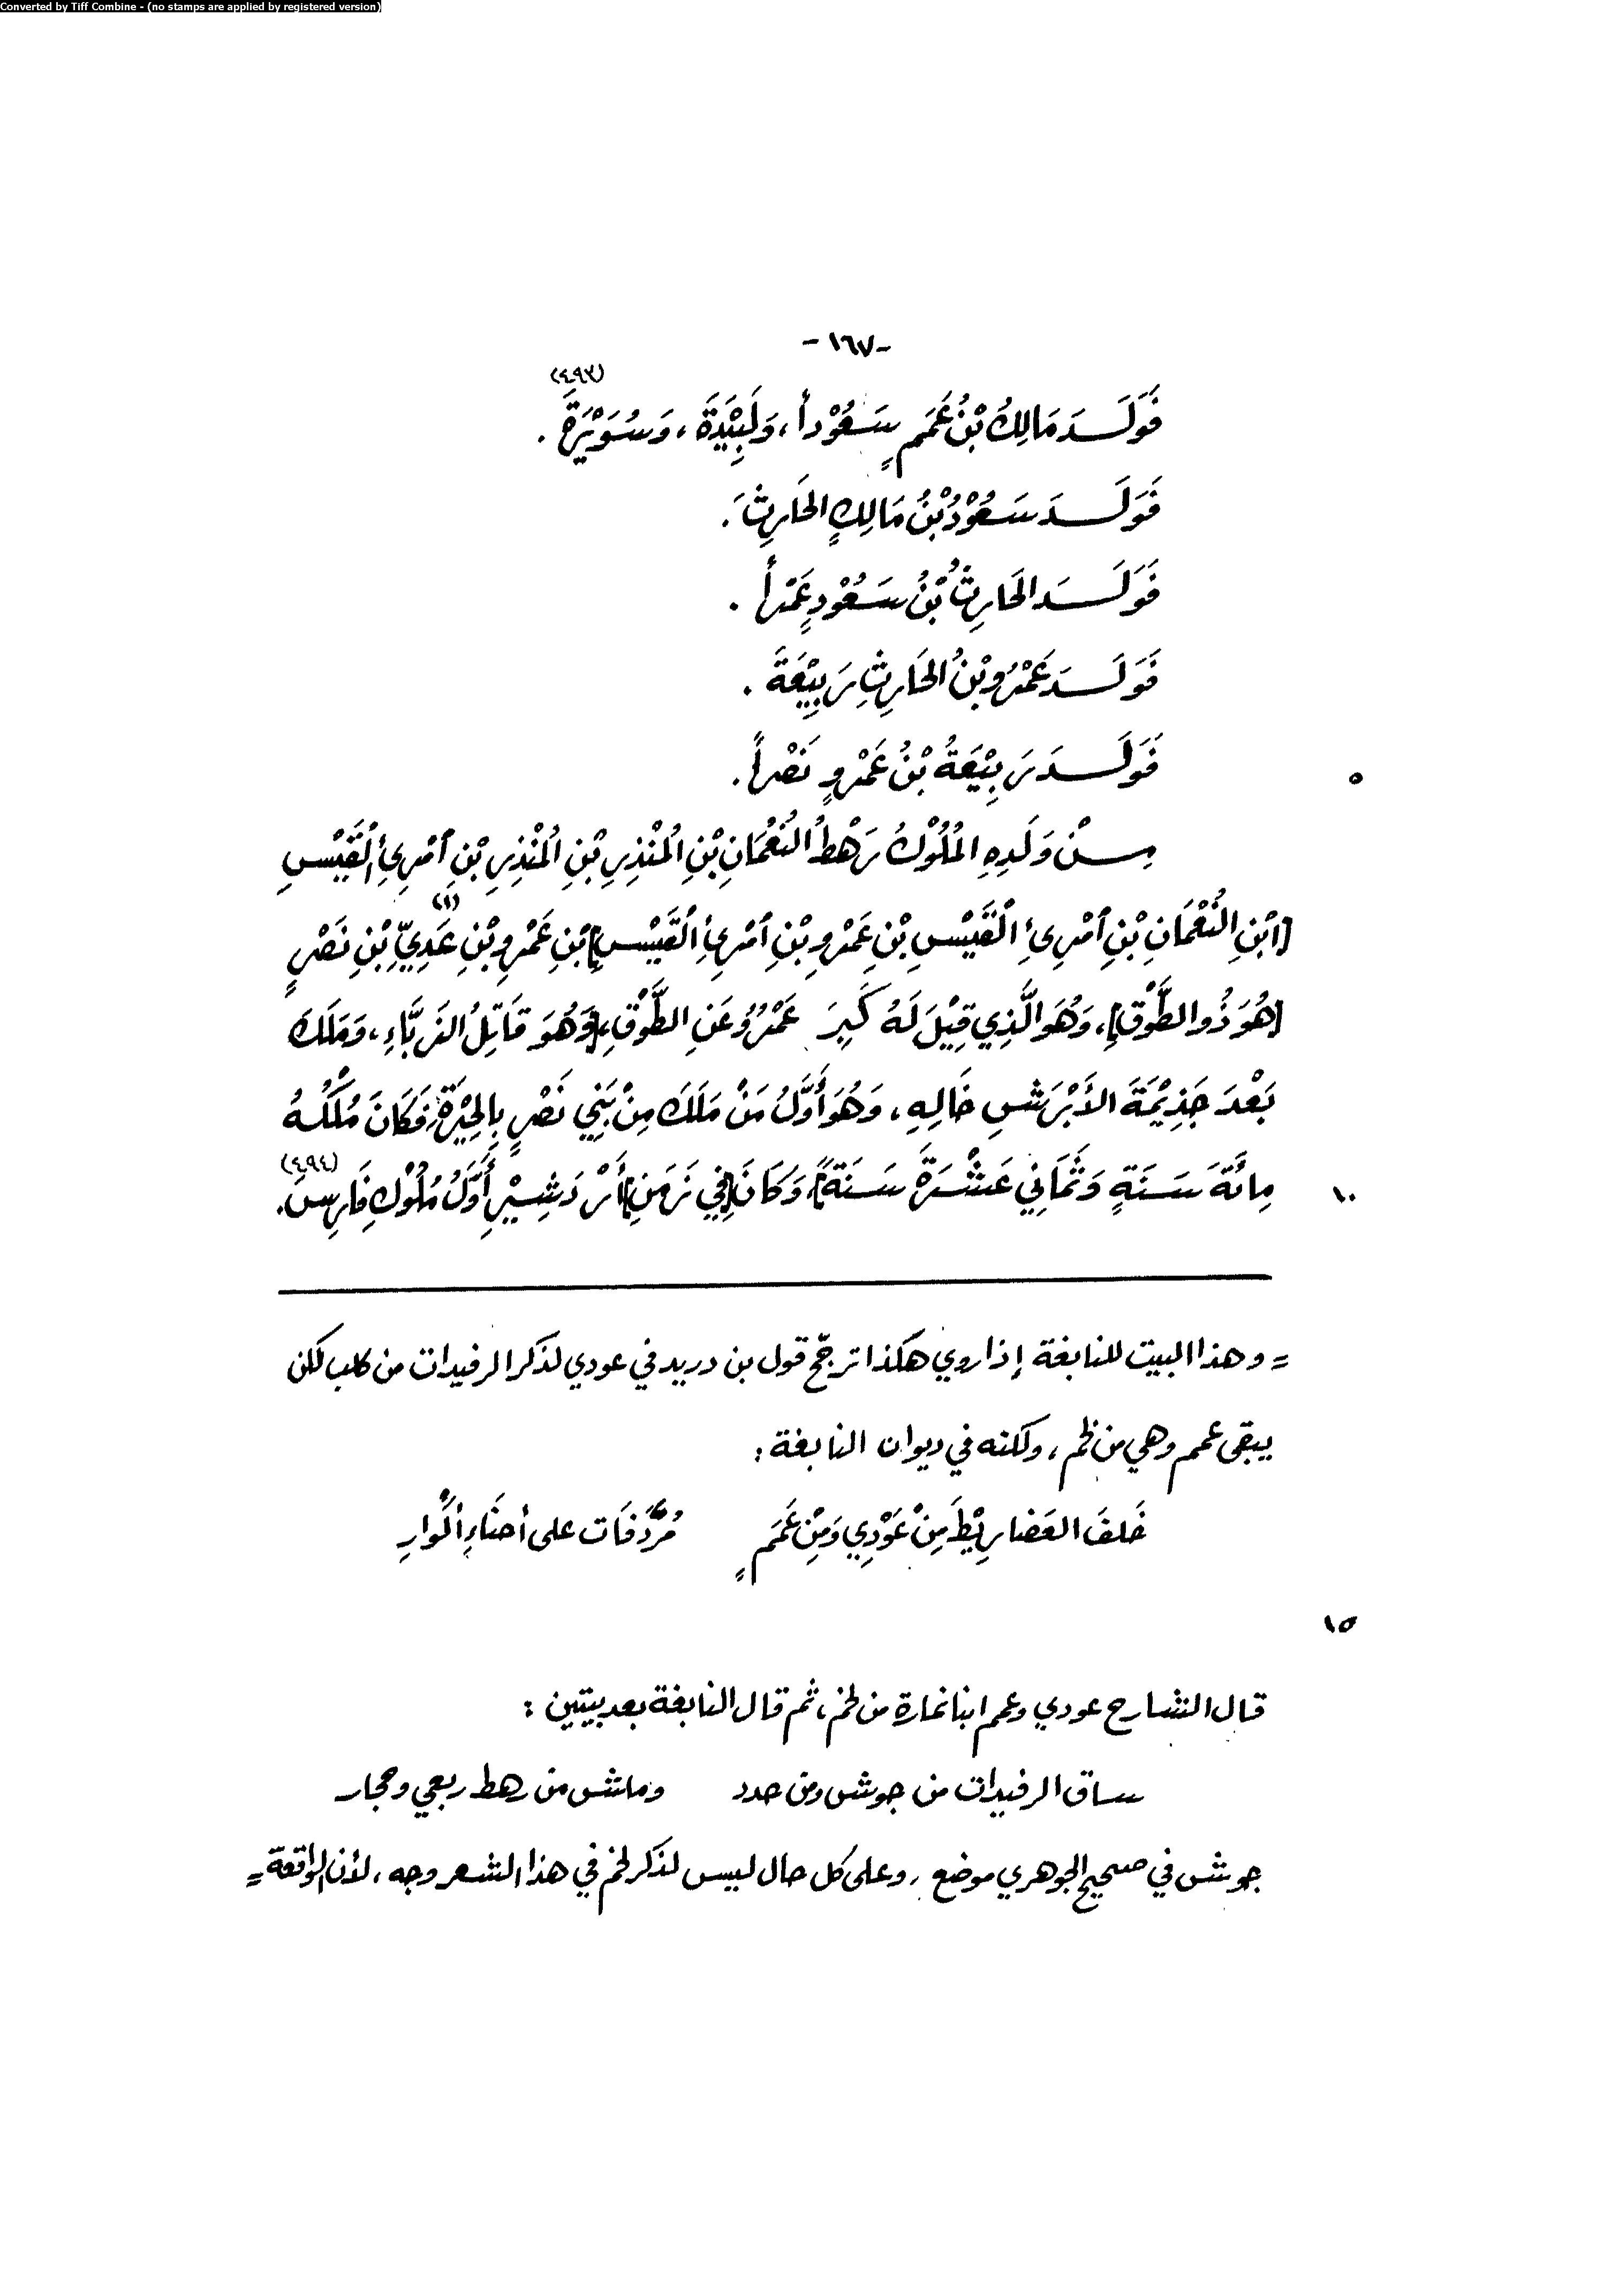 Converted by Tiff Combine - (no stamps are applied by registered version)
-١٦٧-
(٤٩٣)
فَوَلَدَ مَالِكُ بْنُ عَمَمٍ سَعُوْداً، وَلَبِيْدَةَ، وَسُوَيْرَةَ.
فَوَلَدَ سَعُوْدُ بْنُ مَالِكٍ الحَارِثَ.
فَوَلَدَ الحَارِثُ بْنُ سَعُوْدٍ عَمْراً.
فَوَلَدَ عَمْرُو بْنُ الحَارِثِ رَبِيْعَةَ.
فَوَلَدَ رَبِيْعَةُ بْنُ عَمْرٍو نَصْراً.
٥
مِنْ وَلَدِهِ المُلُوْكُ رَهْطُ النُّعْمَانِ بْنِ المُنْذِرِ بْنِ المُنْذِرِ بْنِ ٱمْرِئِ ٱلْقَيْسِ
[ابْنِ النُّعْمَانِ بْنِ ٱمْرِئِ ٱلْقَيْسِ بْنِ عَمْرِو بْنِ ٱمْرِئِ ٱلْقَيْسِ] بْنِ عَمْرِو بْنِ عَدِيِّ بْنِ نَصْرٍ (١)
[هُوَ ذُو الطَّوْقِ]، وَهُوَ الَّذِي قِيْلَ لَهُ كَبِرَ عَمْرٌو عَنِ الطَّوْقِ، [وَهُوَ قَاتِلُ الزَّبَّاءِ، وَمَلَكَ
بَعْدَ جَذِيْمَةَ الأَبْرَشِ خَالِهِ، وَهُوَ أَوَّلُ مَنْ مَلَكَ مِنْ بَنِي نَصْرٍ بِالحِيْرَةِ، فَكَانَ مُلْكُهُ
مِائَةَ سَنَةٍ وَثَمَانِي عَشْرَةَ سَنَةً]، وَكَانَ [فِي زَمَنِ] أَرْدَشِيْرِ أَوَّلِ مُلُوْكِ فَارِسَ. (٤٩٤)
١٠
= وهذا البيت للنابغة إذا روي هكذا ترجّح قول بن دريد في عودي لذكر الرفيدات من كلب لكن
يبقى عمم وهي من لخم، ولكنه في ديوان النابغة:
خَلفَ العَضارِيْطَ مِنْ عَوْدِي وَمِنْ عَمَمٍ مُرَدَّفَات على أحنَاءِ أكْوارِ
١٥
قال الشارح عودي وعمم ابنا نمارة من لخم، ثم قال النابغة بعد بيتين:
ساق الرفيدات من جوش ومن حدد وماش من رهط ربعي وحجار
جوش في صحيح الجوهري موضع، وعلى كل حال ليس لذكر لخم في هذا الشعر وجه، لأن الواقعة =